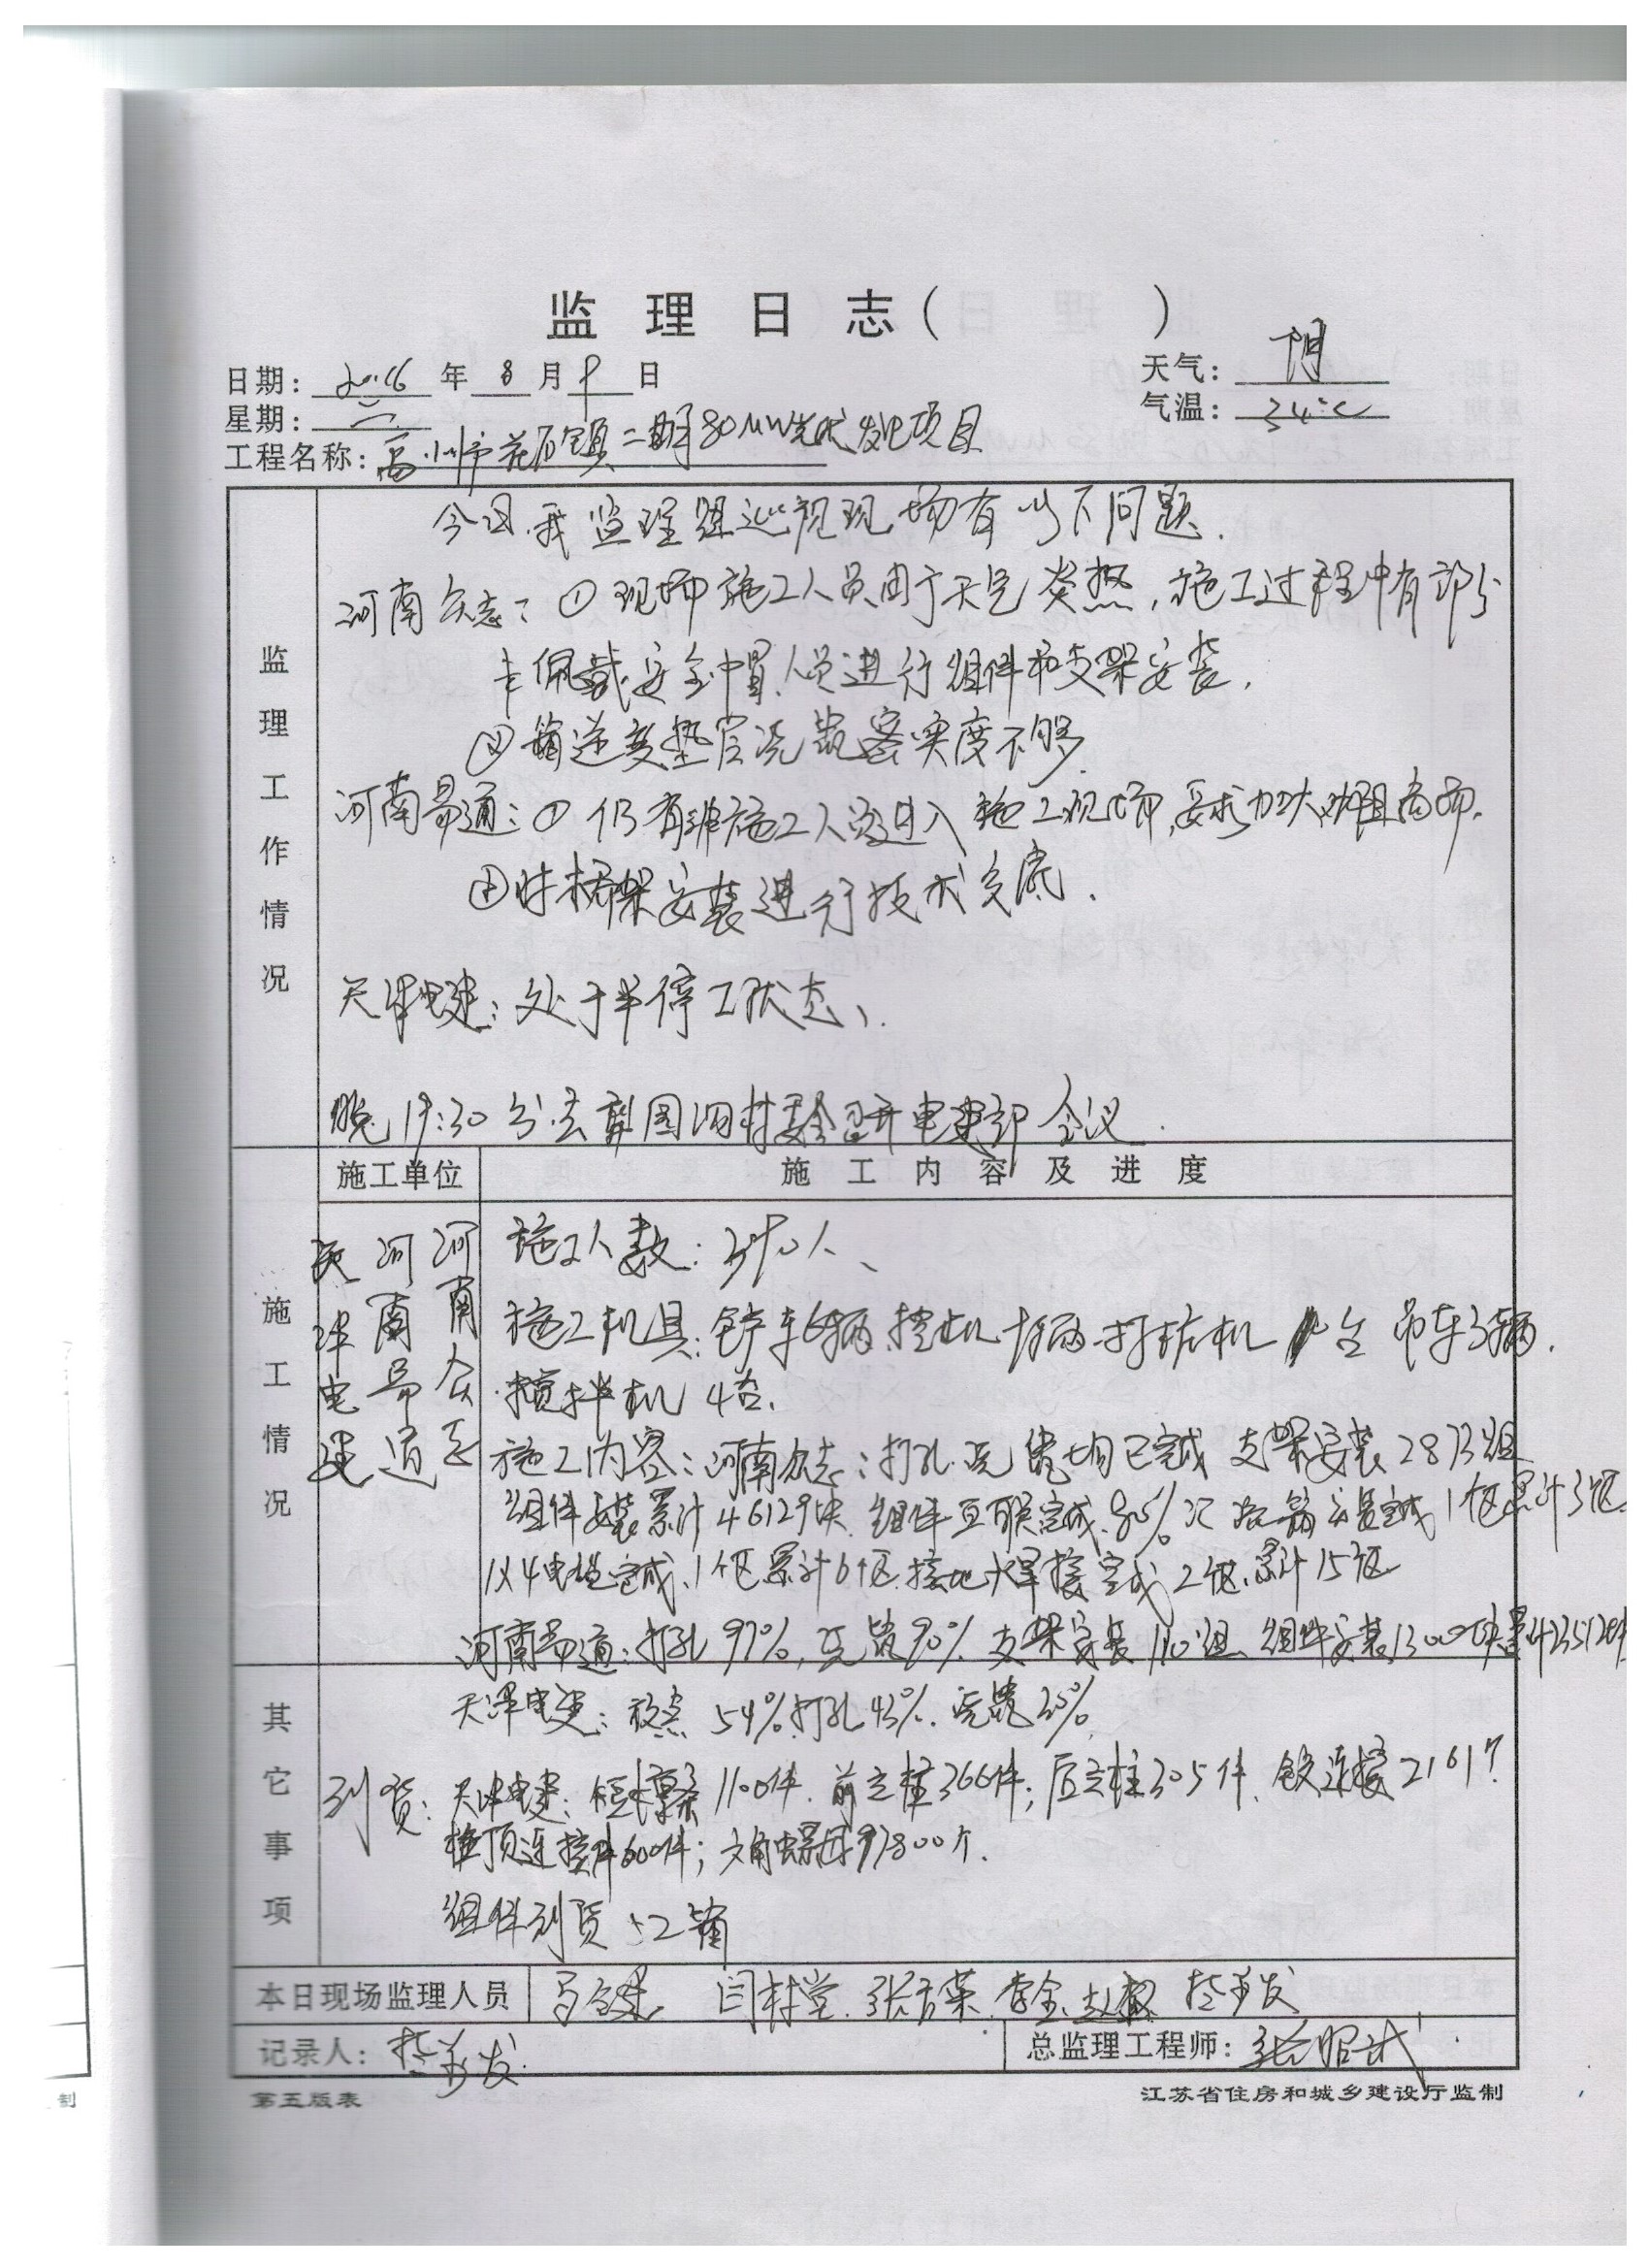 监理日志（ ）
日期：2016年8月9日
天气：阴
星期：二
气温：34℃
工程名称：高州市花石镇二期80MW光伏发电项目
监理工作情况
今日我监理组巡视现场有以下问题.
河南众志：①现场施工人员由于天气炎热，施工过程中有部分
未佩戴安全帽人员进行组件和支架安装.
②箱逆变垫层浇筑密实度不够
河南易通：①仍有非施工人员进入施工现场,要求加大
②对桥架安装进行技术交底.
天津电建：处于半停工状态、.
晚19:30分去 村委会召开电建部会议.
施工单位
施工内容及进度
施工情况
天津电建
河南易通
河南众志
施工人数：390人、
施工机具：铲车6辆 挖机 辆 打桩机 台 吊车3辆.
搅拌机4台.
施工内容：河南众志：打孔.浇筑均已完成 支架安装2873组
组件安装累计46129块 组件互联完成80% 汇流箱安装完成1个区累计3个区
1X4电缆完成1个区累计6个区.接地焊接完成2个区.累计15个区
河南易通：打孔97%，浇筑90% 支架安装110组、组件安装1300块累计
天津电建：放点54%打孔43%.浇筑30%
其它事项
到货：天津电建： 1100件. 前立柱366件；后立柱305件. 连接2161个
柱顶连接件600件；六角螺母97800个.
组件到货52箱
本日现场监理人员
闫林堂.张方荣.李金.
记录人：
总监理工程师：张昭武
第五版表
江苏省住房和城乡建设厅监制
制